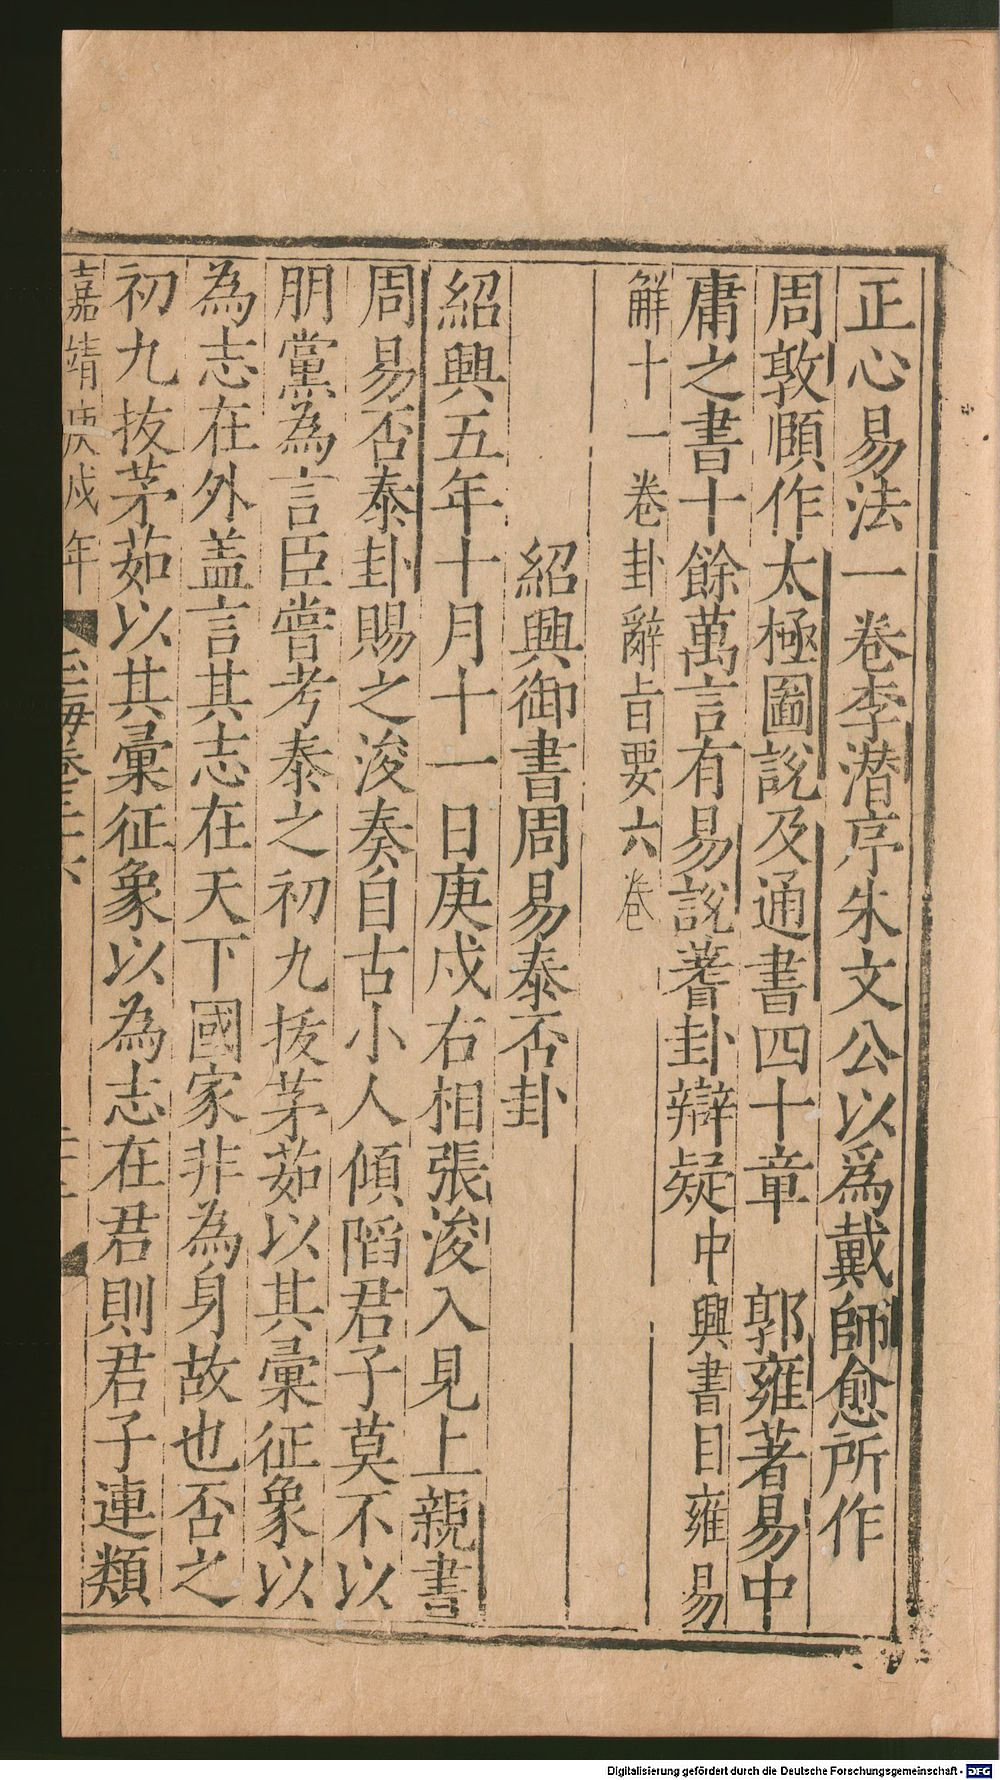 正心易法一卷李潜序朱文公以爲戴師愈所作
周敦頤作太極圖說及通書四十章　郭雍著易中
庸之書十餘萬言有易說蓍卦辯疑中興書目雍易
解十一卷卦辭㫖要六卷
紹興御書周易泰否卦
紹興五年十月十一日庚戍右相張浚入見上親書
周易否泰卦賜之浚奏自古小人傾䧟君子莫不以
朋黨為言臣嘗考泰之初九拔茅茹以其彙征象以
為志在外盖言其志在天下國家非為身故也否之
初九拔茅茹以其彙征象以為志在君則君子連類
嘉靖庚戍年
玉海卷三十六
Digitalisierung gefördert durch die Deutsche Forschungsgemeinschaft - DFG